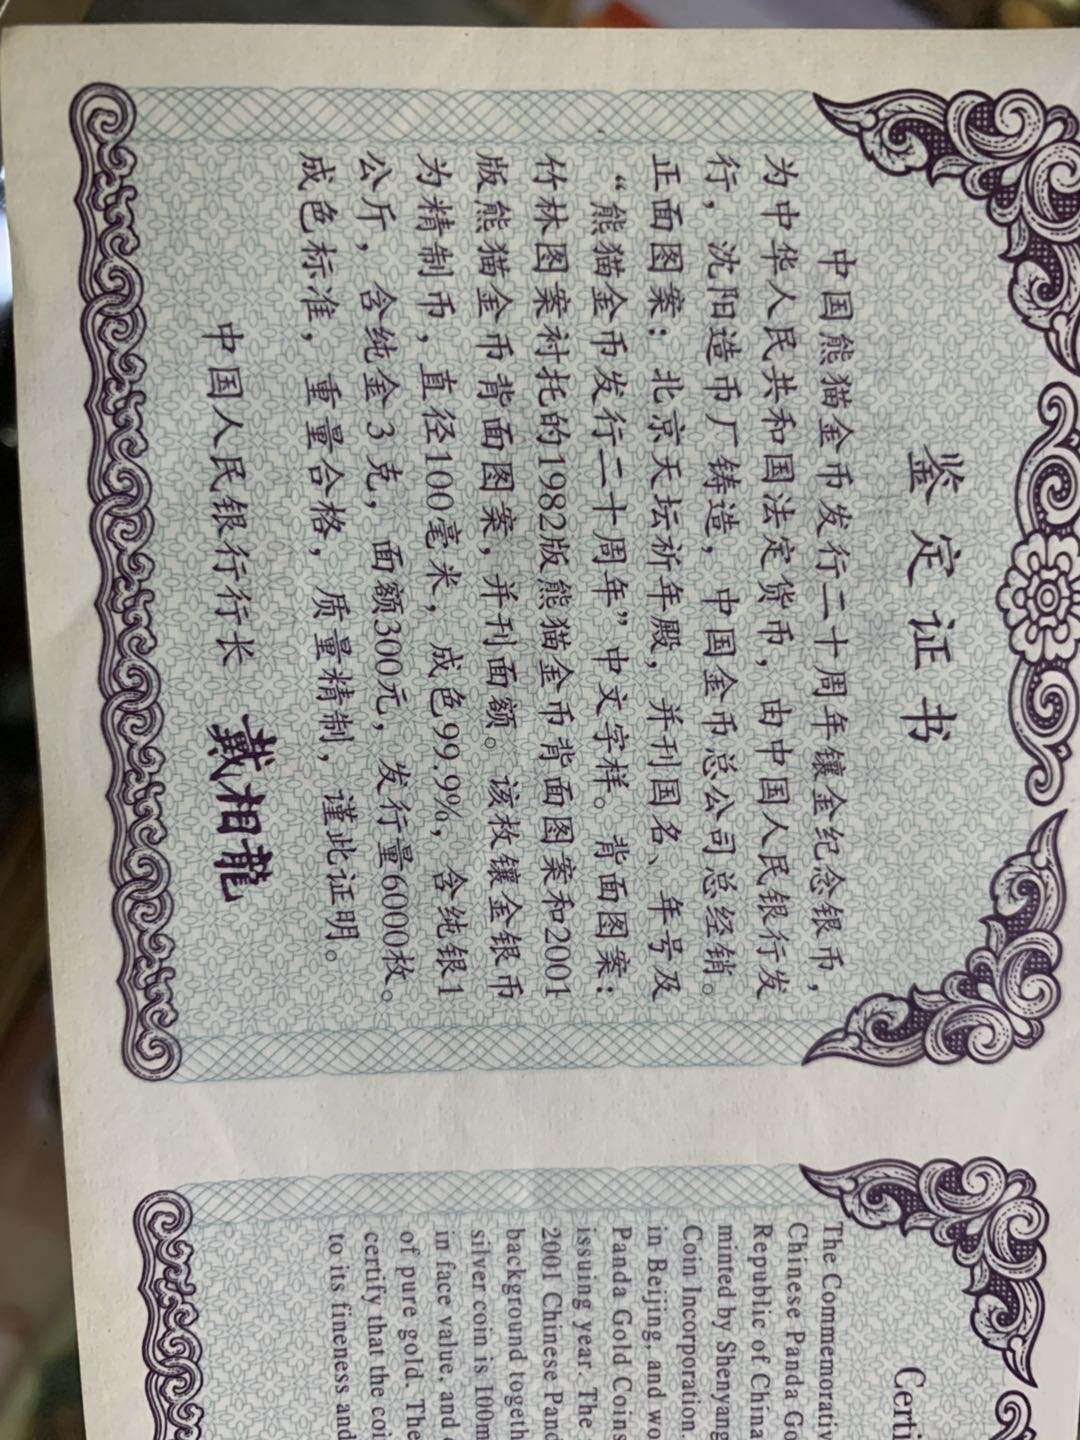 鉴定证书
中国熊猫金币发行二十周年镶金纪念银币，
为中华人民共和国法定货币，由中国人民银行发
行，沈阳造币厂铸造，中国金币总公司总经销。
正面图案：北京天坛祈年殿，并刊国名、年号及
“熊猫金币发行二十周年”中文字样。背面图案：
竹林图案衬托的1982版熊猫金币背面图案和2001
版熊猫金币背面图案，并刊面额。该枚镶金银币
为精制币，直径100毫米，成色99.9%，含纯银1
公斤，含纯金3克，面额300元，发行量6000枚。
成色标准，重量合格，质量精制，谨此证明。
中国人民银行行长 戴相龍
Certi
The Commemorativ
Chinese Panda Go
Republic of China
minted by Shenyang
Coin Incorporation.
in Beijing, and wo
Panda Gold Coins
issuing year. The
2001 Chinese Pand
background togeth
silver coin is 100m
in face value, and
of pure gold. The
certify that the coi
to its fineness and